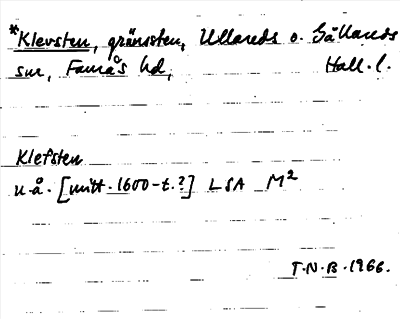 *Klevsten, gränssten, Ullareds o. Gällareds
snr, Faurås hd, Hall. l.
Klefsten
u.å. [mitt. 1600-t.?] LSA M²
T.N.B. 1966.